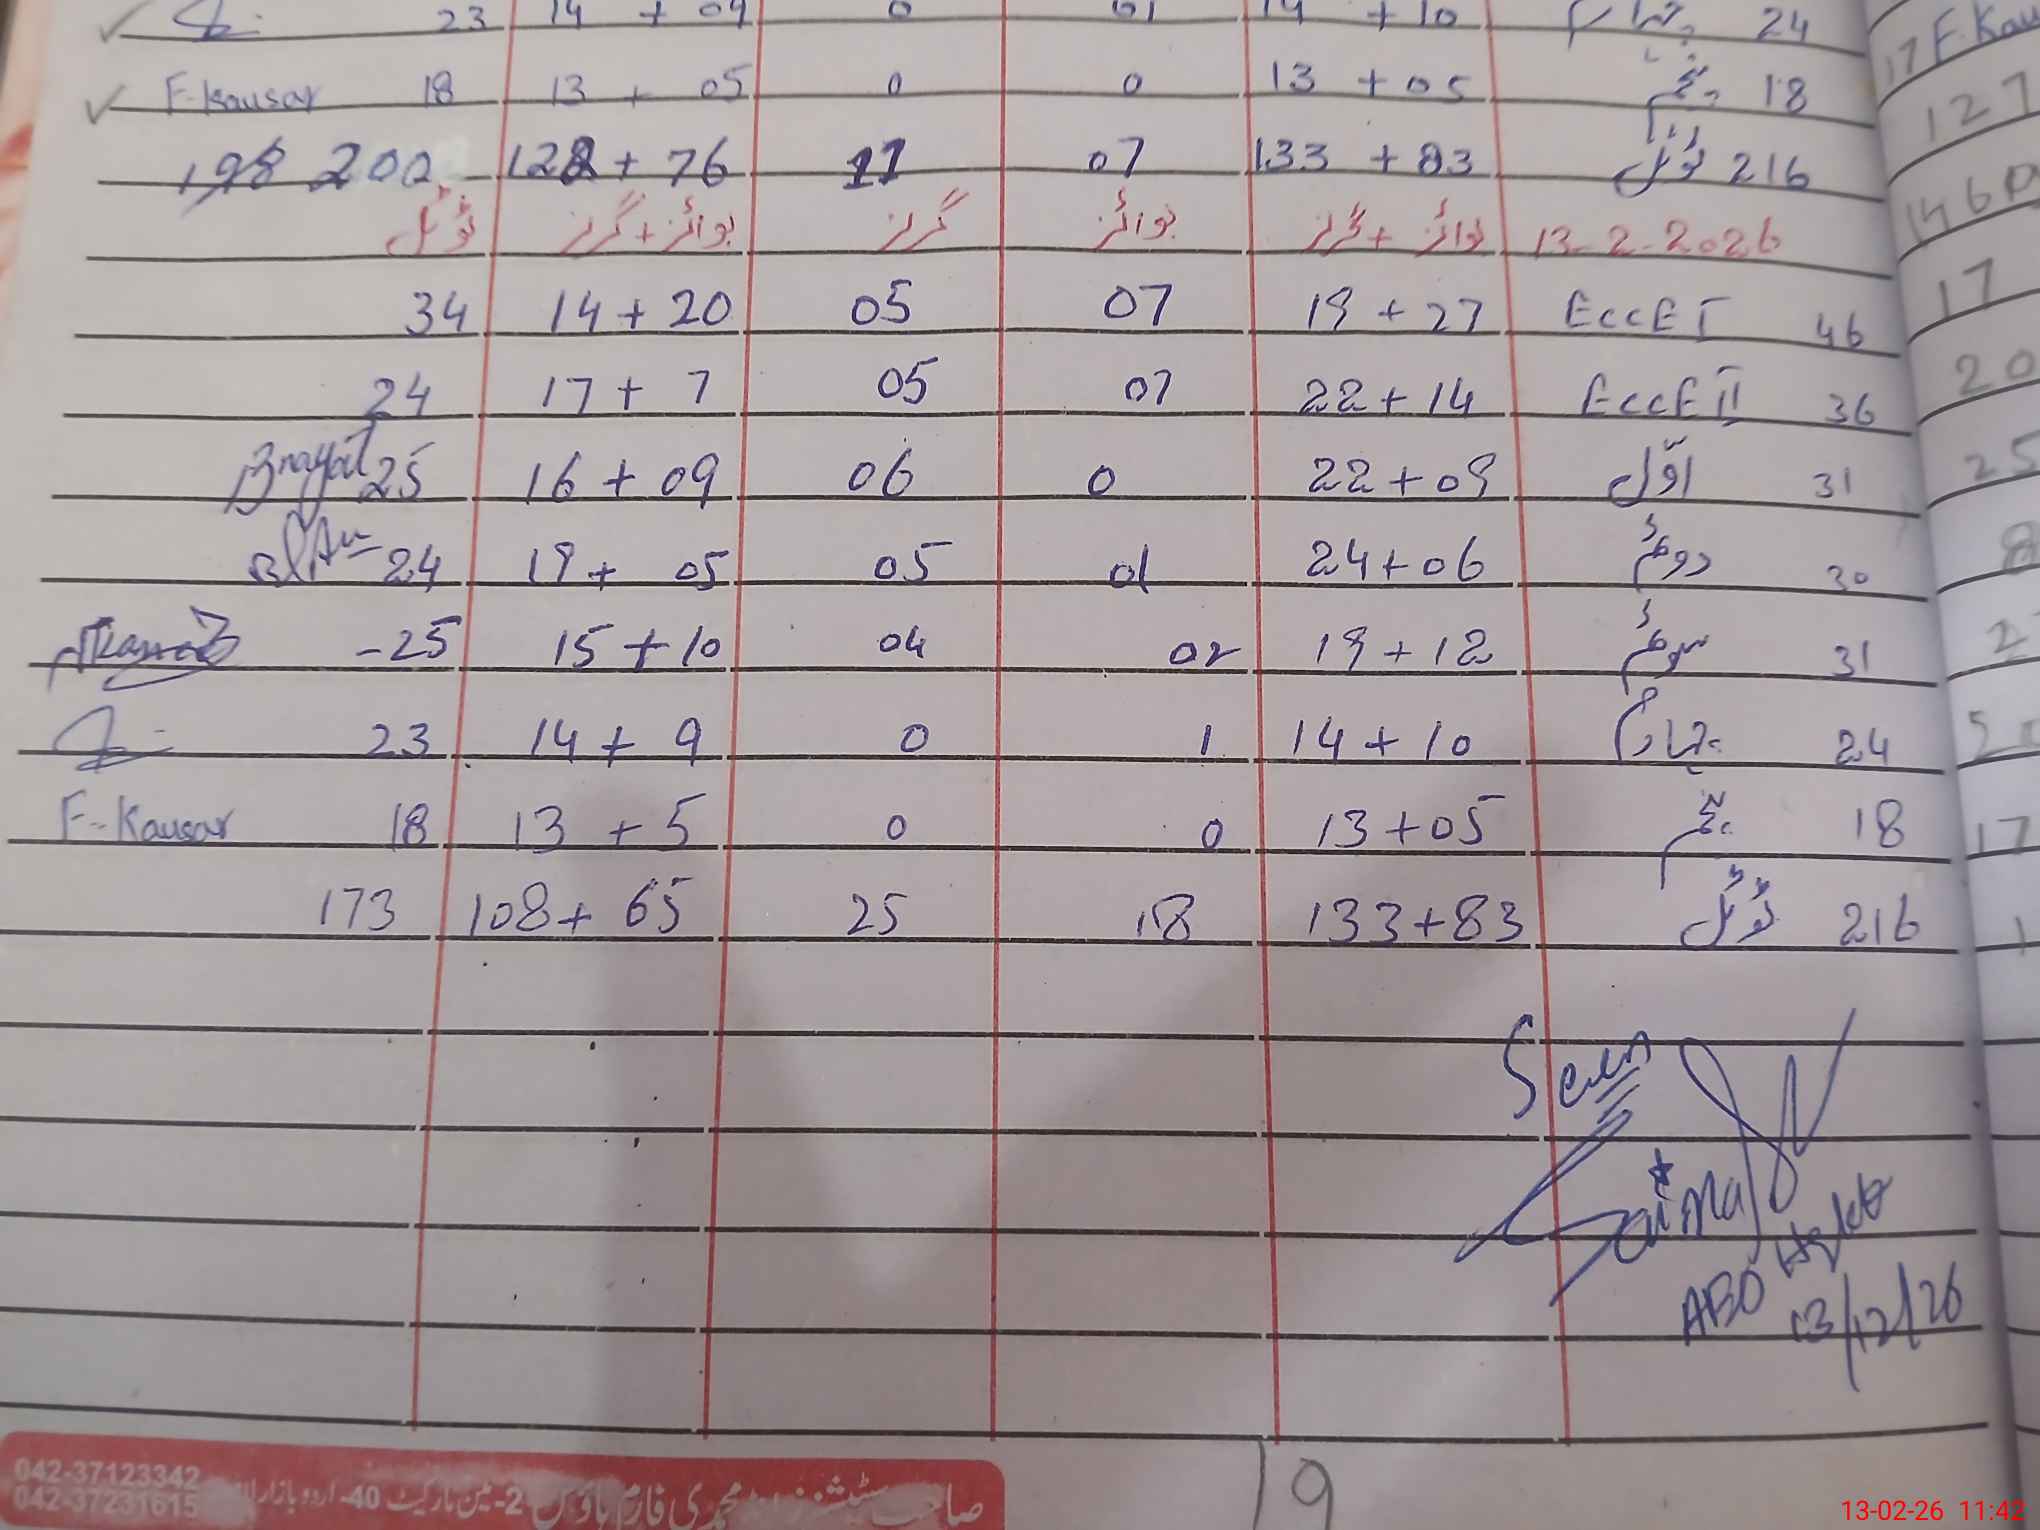 23 14 + 09 0 01 14 + 10 چہارم 24
F. Kausar 18 13 + 05 0 0 13 + 05 پنجم 18 17 F. Kau
198 200 122 + 76 11 07 133 + 83 ٹوٹل 216 127
ٹوٹل بوائز + گرلز گرلز بوائز بوائز + گرلز 13-2-2026 146
34 14 + 20 05 07 19 + 27 EccE I 46 17
24 17 + 7 05 07 22 + 14 EccE II 36 20
25 16 + 09 06 0 22 + 09 اوّل 31 25
24 19 + 05 05 01 24 + 06 دوئم 30 8
-25 15 + 10 04 02 19 + 12 سوئم 31 2
23 14 + 9 0 1 14 + 10 چہارم 24 5
F. Kausar 18 13 + 5 0 0 13 + 05 پنجم 18 17
173 108 + 65 25 18 133 + 83 ٹوٹل 216 1
Seen
Saima
13/12/26
042-37123342
042-37231615
محمدی فارم ہاؤس 2-مین مارکیٹ 40-اردو بازار
19
13-02-26 11:42